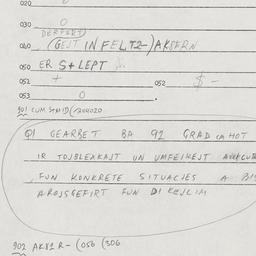 020
030 0
DERFERT)
040 (GEIT IN FELTZ-) AKSERN
050 ER S+LEPT
051 + 052 $ -
053 0 .
901 CUM. STMID (-200020
Q1 GEARBET BA 92 GRAD CA HOT
IR TOJBLEXKAJT UN UMFEINEST
FUN KONKRETE SITUACIES A BIS
AROJSGEFIRT FUN DI KEJLIM
902 AK81 R- (056 (306